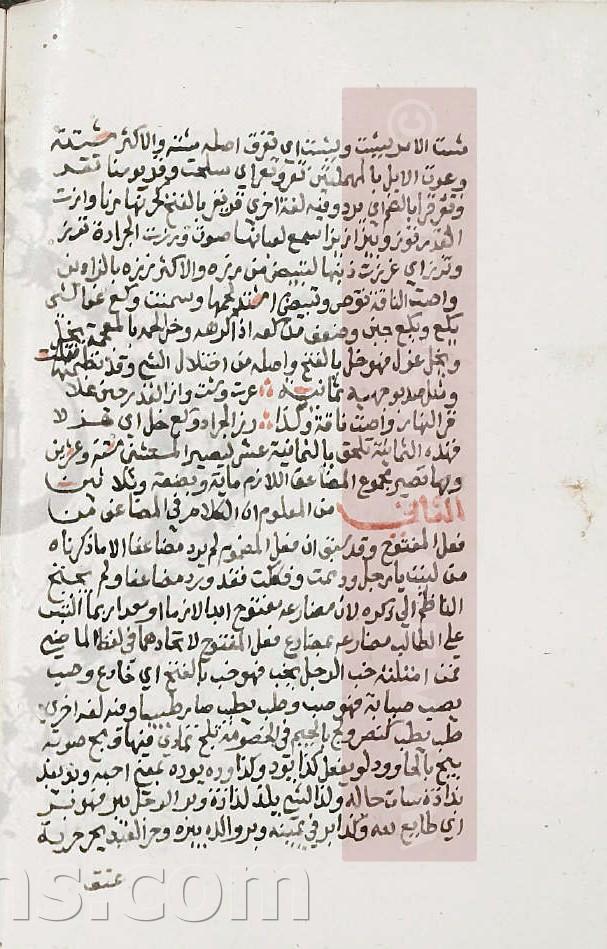 شت الامر يشت ويشت اي تفرق اصله شتته والاكثر
وعرت الابل بالمهملتين تعر وتعر اي سلحت وقر يومنا
وتقر قرا بالضم اي برد وفيه لغة اخرى قر يقر بالفتح وازت
القدر تؤز وتئز ازيزا سمع لغليانها صوت ورزت الجرادة ترز
وترز اي غرزت ذنبها لتبيض من رزه والاكثر رززه بالزاي
واصت الناقة تؤص وتئص اشتد لحمها وسمنت وكع عن الشي
يكع ويكع جبن وضعف من كعه اذا اكرهه وخل لحمه بالمعجمة يخل
ويخل هزل فهو خل بالفتح واصله من اختلال الشي وقد نظمتها
ثمانية عرت وشت واز القدر حين غلا
قر النهار واصت ناقة وكذا رز الجراد وكع خل اي هزلا
فهذه الثمانية تلحق بالثمانية عشر ليصير المستثنى ستة وعشرين
وبها تصير مجموع المضاعف اللازم ماية وبضعة وثلاثين
الثاني من المعلوم ان الكلام في المضاعف من
فعل المفتوح وقد سبق ان فعل المضموم لم يرد مضاعفا الا ما ذكرناه
من لببت يا رجل ودممت وفككت فقد ورد مضاعفا ولم يحتج
الناظم الى ذكره لان مضارعه مفتوح ابدا لازما او معدا ربما التبس
على الطالب مضارعه بمضارع فعل المفتوح لاتحادهما في لفظ الماضي
فمن امثلته خب الرجل يخب فهو خب بالفتح اي خادع وصب
يصب صبابة فهو صب وطب يطب صار طبيبا وفيه لغة اخرى
طب يطب كنصر ولج بالجيم في الخصومة يلج تمادى فيها وبح صوته
يبح بالحا وود لو يفعل كذا يود وكذا وده يوده بمعنى احبه وبذ يبذ
بذاذة سات حاله ولذ الشي يلذ لذاذة وبر الرجل يبر فهو بر
اي طايع لله وكذا بر في يمينه وبر والده يبره وحر العبد يحر حرية
عتق